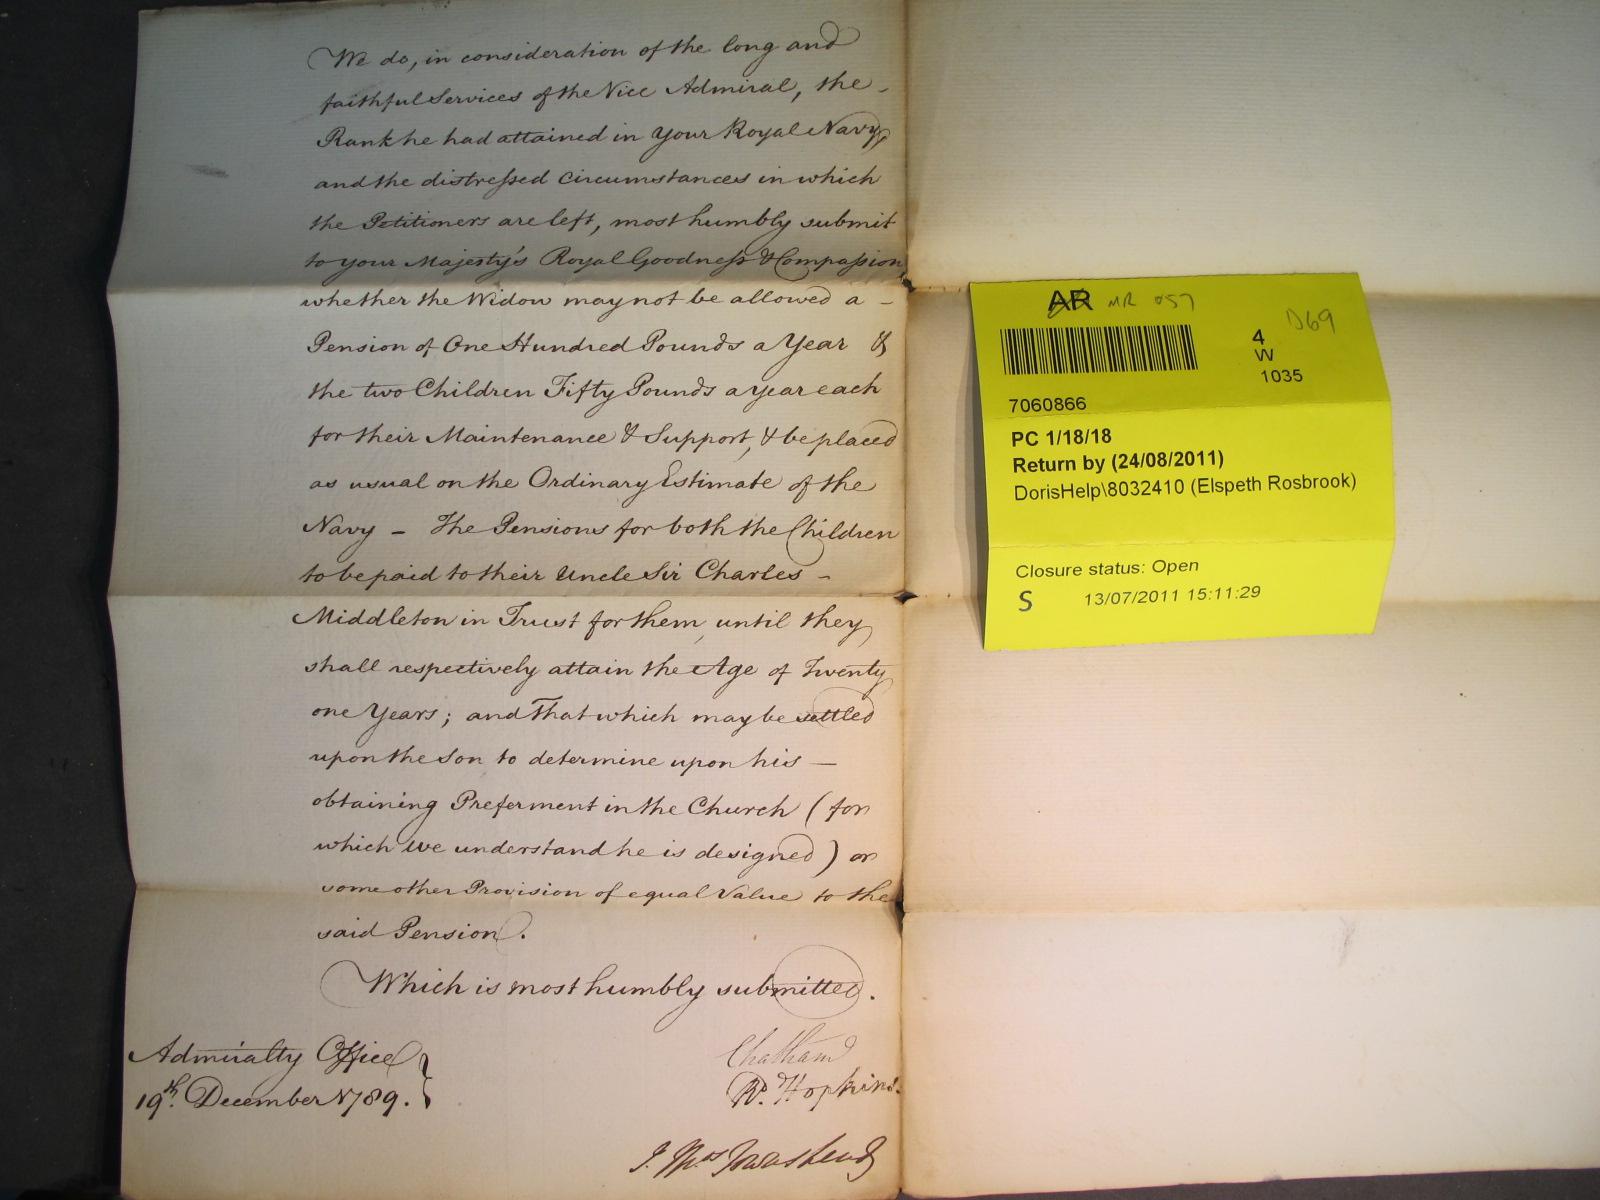 We do, in consideration of the long and
faithful Services of the Vice Admiral, the -
Rank he had attained in Your Royal Navy,
and the distressed Circumstances in which
the Petitioners are left, most humbly submit
to your Majesty's Royal Goodness & Compassion,
whether the Widow may not be allowed a -
Pension of One Hundred Pounds a Year &
the two Children Fifty Pounds a year each
for their Maintenance & Support, & be placed
as usual on the Ordinary Estimate of the
Navy - The Pensions for both the Children
to be paid to their Uncle Sir Charles -
Middleton in Trust for them, until they
shall respectively attain the Age of Twenty
one Years; and That which may be settled
upon the Son to determine upon his —
obtaining Preferment in the Church (for
which we understand he is designed) or
some other Provision of equal Value to the
said Pension.
Which is most humbly submitted.
Admiralty Office
19th. December 1789.
Chatham
Rd. Hopkins.
J. Thos Townshend
AR MR 057
D69
4
W
1035
7060866
PC 1/18/18
Return by (24/08/2011)
DorisHelp\8032410 (Elspeth Rosbrook)
Closure status: Open
S 13/07/2011 15:11:29